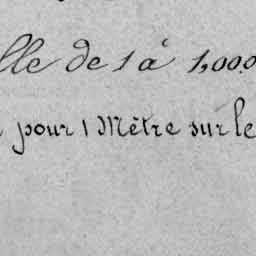 lle de 1 à 1,000
pour 1 Mètre sur le